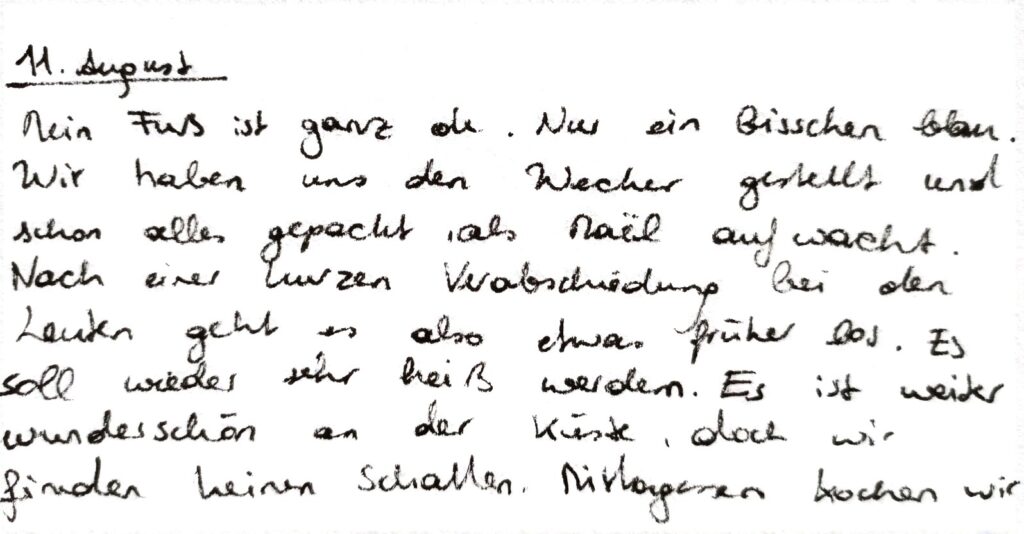 11. August
Mein Fuß ist ganz ok. Nur ein Bisschen blau.
Wir haben uns den Wecker gestellt und
schon alles gepackt, als Maël aufwacht.
Nach einer kurzen Verabschiedung bei den
Leuten geht es also etwas früher los. Es
soll wieder sehr heiß werden. Es ist weiter
wunderschön an der Küste, doch wir
finden keinen Schatten. Mittagessen kochen wir